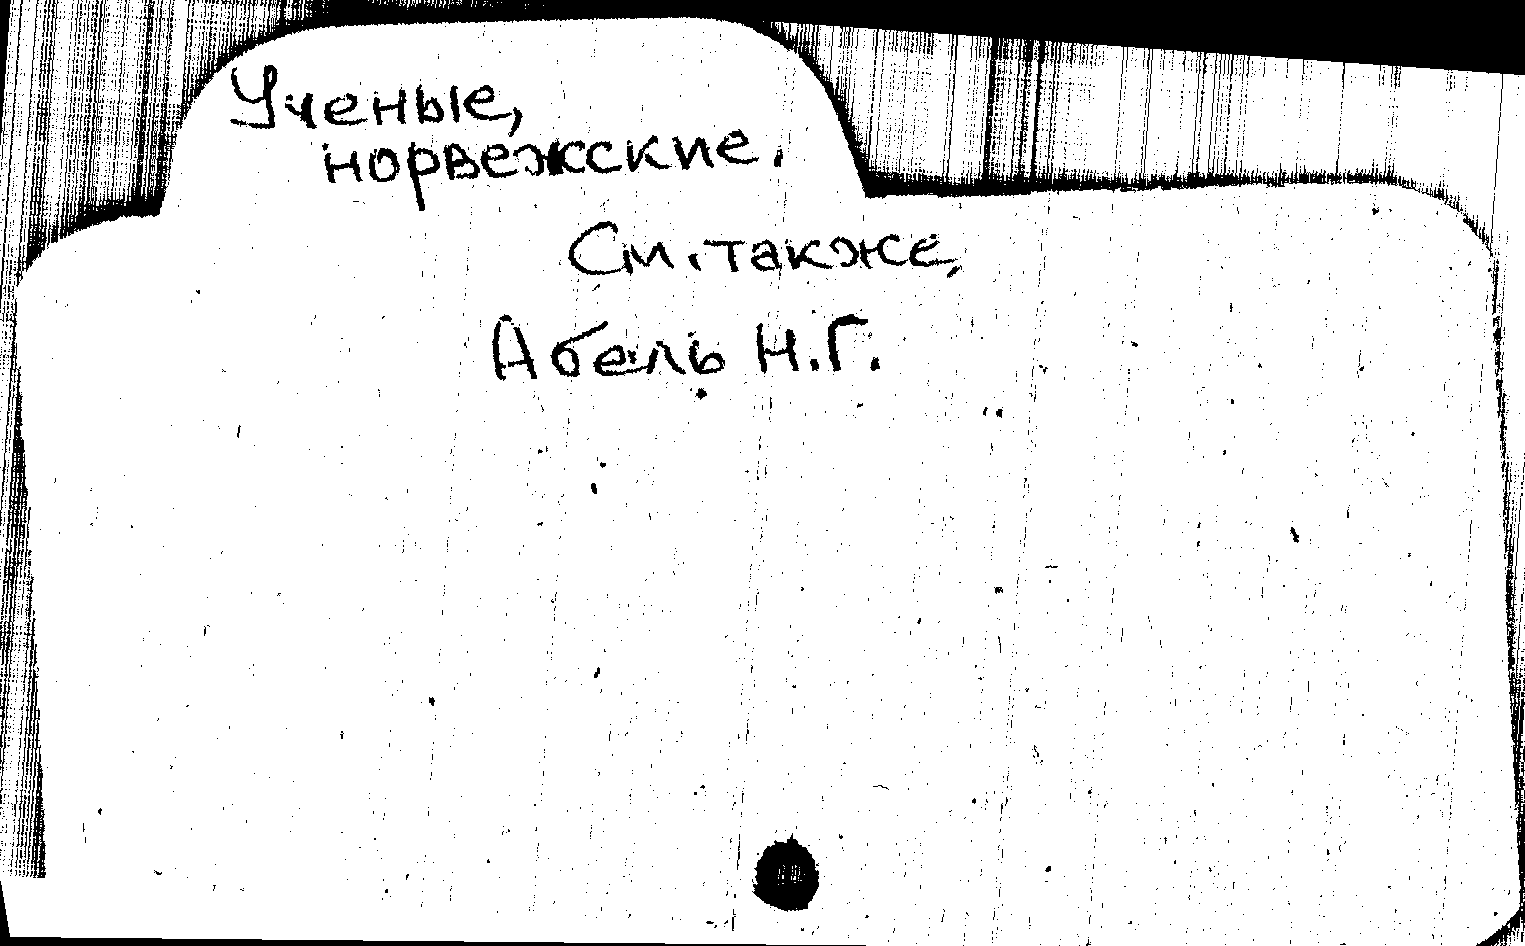 Ученые,
норвежские.
См. также,
Абель Н.Г.